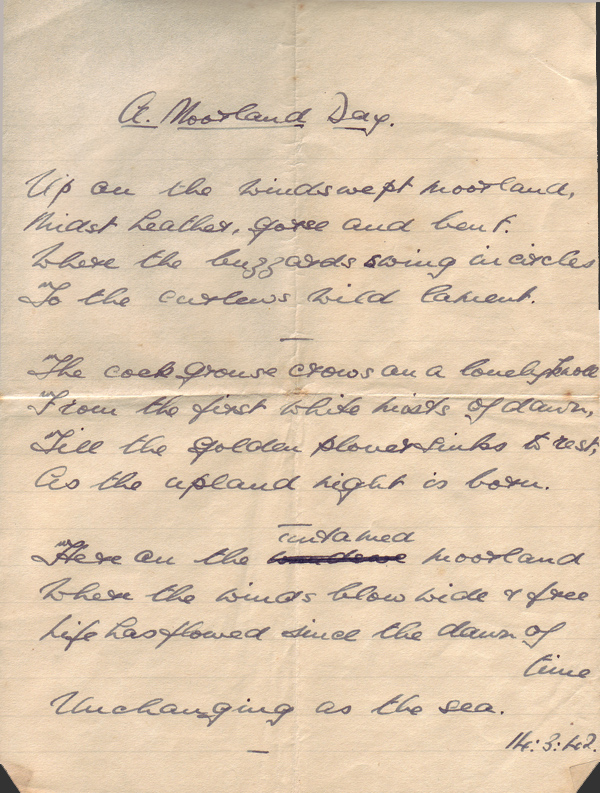 A. Moorland Day.
Up on the windswept moorland,
Midst heather, gorse and bent.
Where the buzzards swing in circles
To the curlews wild lament.
—
The cock grouse crows on a lonely knoll
From the first white mists of dawn,
Till the golden plover sinks to rest,
As the upland night is born.
untamed
Here on the moorland
Where the winds blow wide & free
Life has flowed since the dawn of
time
Unchanging as the sea.
—
14:3:42.